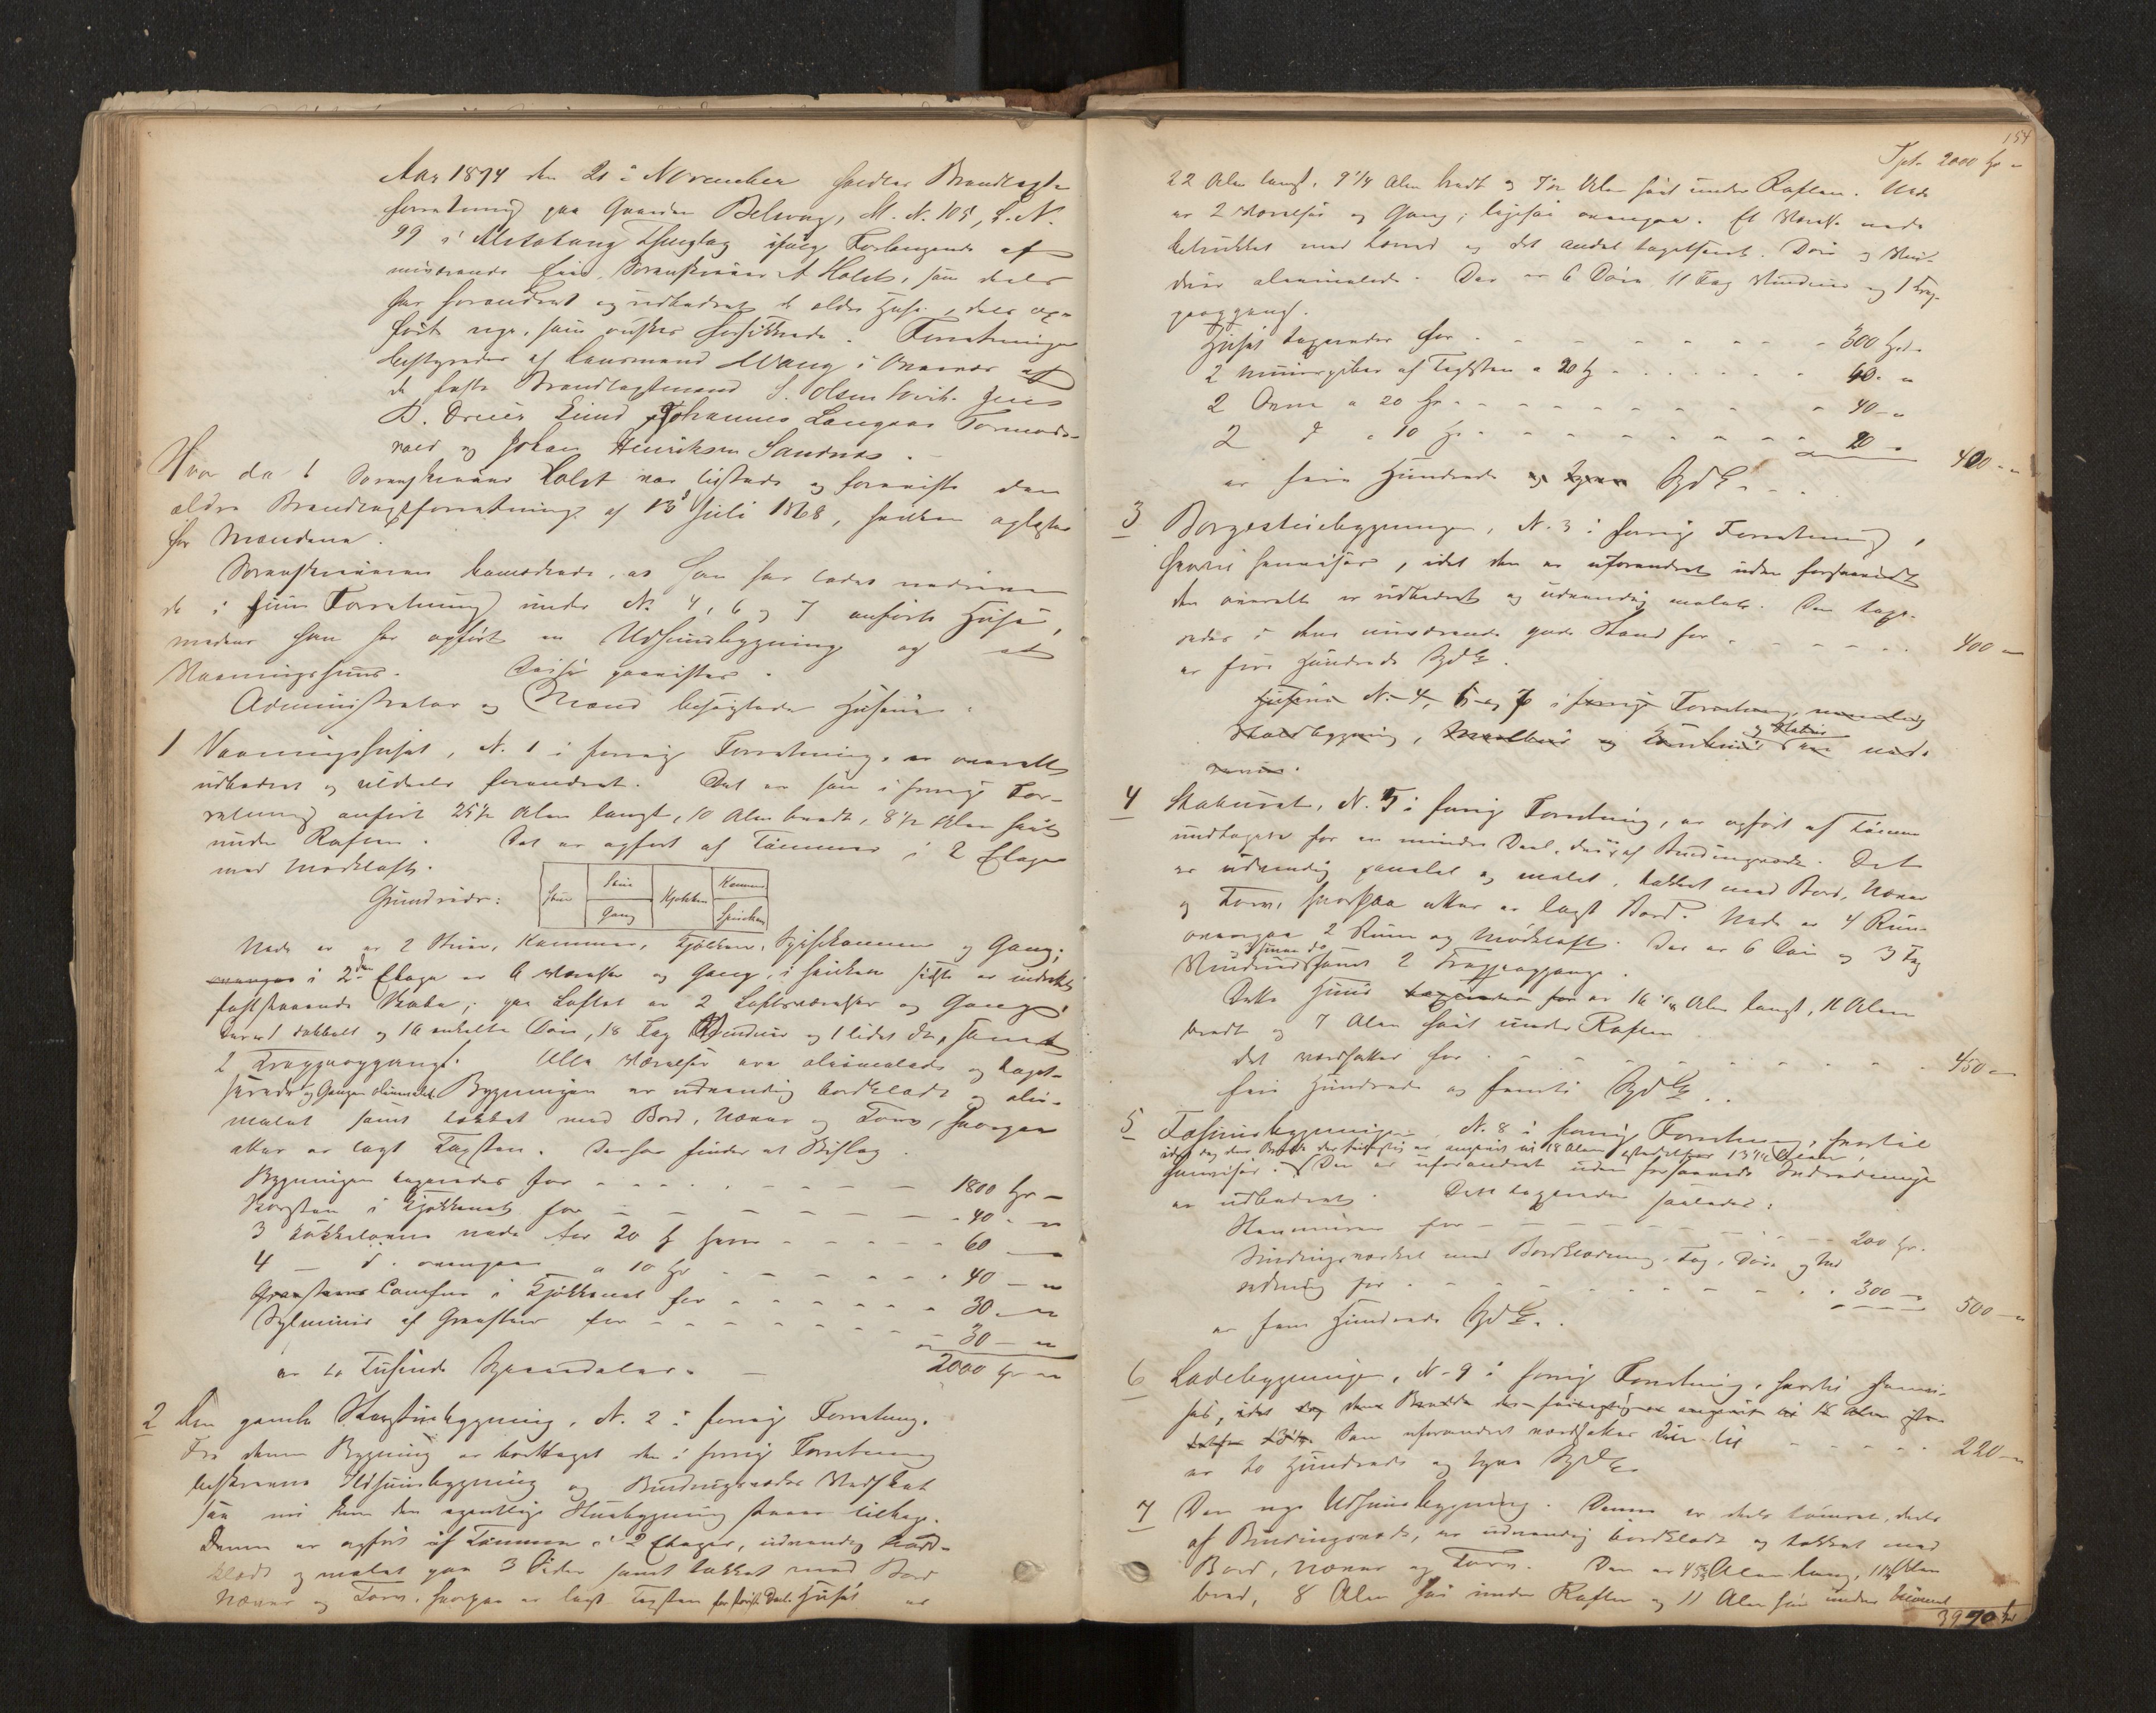 Aar 1874 den 21 November holdtes Brandtagts
forretning paa Gaarden Belsvag, M. N. 105, L. N.
99 i Alstahaug Thinglag ifølge Forlangende af
nuværende Eier, Sorenskriver A Holst, som dels
har forandret og udbedret de ældre Huse, dels op-
ført nye, som ønskes forsikkrede. Forretningen
bestyredes af Lensmand Wang i Overvær af
de faste Brandtagtmænd S. Olsen Jens
B. Lund Johannes Langaas Tormods-
og Johan Henriksen Sandnæs.
Hvor da Sorenskriver Holst var tilstede og foreviste den
ældre Brandtagtsforretning af 13 Juli 1868, hvilken oplæstes
for Mændene.
Sorenskriveren bemærkede, at han har ladet nedrive
de i hiin Forretning under N. 4, 6 og 7 anførte Huse,
medens han har opført en Udhuusbygning og et
Vaaningshuus. Disse paavistes.
Administrator og Mænd besigtede Husene.
1 Vaaningshuset, N. 1 i forrige Forretning, er overalt
udbedret og tildels forandret. Det er som i forrige For-
retning anført 25½ Alen langt, 10 Alen bredt, 8½ Alen høit
under Raften. Det er opført af Tømmer i 2 Etager
med Mørkloft.
Grundrids: Stue Stue Gang Kjøkken Kammer Spiseskam
Nede er 2 Stuer, Kammer, Kjøkken, Spisekammer og Gang;
ovenpaa i 2den Etage er 6 Værelser og Gang, i hvilken sidste er indrettet
faststaaende Skabe; paa Loftet er 2 Loftsværelser og Gang;
Der er 1 dobbelt og 16 enkelte Døre, 18 Fag Vinduer og 1 lidet do, samt
2 Trappeopgange. Alle Værelser ere oliemalede og tapet-
serede og Gangen oliemalet. Bygningen er udvendig bordklædt og olie-
malet samt tækket med Bord, Næver og Torv, hvorpaa
atter er lagt Tagsten. Derfor findes et Bislag.
Bygningen taxeredes for 1800 Spd.
Skorsten i Kjøkkenet for 40 "
3 Kakkelovne nede for 20 hver 60 "
4 — d. ovenpaa a 10 Spd 40 "
Comfur i Kjøkkenet for 30 "
Sylmuur af Graasteen for 30 "
er to Tusinde Speciedaler. 2000 Spd
2 Den gamle Storstuebygning, N. 2 i forrige Forretning.
Fra denne Bygning er borttaget den i forrige Forretning
beskrevne Udhuusbygning og Bindingsværks Vedskot
saa nu kun den egentlige Stuebygning staaer tilbage.
Denne er opført af Tømmer i 2 Etager, udvendig bord-
klædt og malet paa 3 Sider samt tækket med Bord
Næver og Torv, hvorpaa er lagt Tagsten for Deel. Huset er
154
Tpt. 2000 Spd "
22 Alen langt, 9¼ Alen bredt og 7½ Alen høit under Raften. Nede
er 2 Værelser og Gang; ligesaa ovenpaa. Et Værelse nede
betrukket med Lærred og det andet tapetseret. Døre og Vin-
duer oliemalede. Der er 6 Døre 11 Fag Vinduer og 1 Trap-
peopgang.
Huset taxeredes for 300 Spd.
2 Muurpiber af Teglsten a 20 40 "
2 Ovne a 20 Spd 40 "
2 d a 10 Spd 20 " 400 "
er fire Hundrede og tyve Spd.
3 Borgestuebygningen, N. 3 i forrige Forretning,
hvortil henvises, idet den er uforandret uden forsaavidt
den overalt er udbedret og udvendig malet. Den taxe-
redes i dens nuværende gode Stand for 400 "
er fire Hundrede Spd.
Husene N. 4, 6 og 7 i forrige Forretning, nemlig
bygning, og og ere ned-
revne.
4 Staburet, N. 5 i forrige Forretning, er opført af Tømmer
undtagen for en mindre Deel, der er af Bindingsværk. Det
er udvendig panelet og malet, tækket med Bord, Næver
og Torv, hvorpaa atter er lagt Bord. Nede er 4 Rum
ovenpaa 2 Rum og Mørkloft. Der er 6 Døre og 3 Fag
Vinduer og 3 smaa do samt 2 Trappeopgange.
Dette Huus taxeredes for er 16 ¼ Alen langt, 11 Alen
bredt og 7 Alen høit under Raften.
det værdsattes for 450 "
fire Hundrede og femti Spd.
5 Fæhuusbygningen, N. 8 i forrige Forretning, hvortil
idet dog dens Bredde der feilagtig er angivet til 18 Alen istedetfor 13½ Alen
henvises. Den er uforandret uden forsaavidt Indredningen
er udbedret. Dette taxeredes saaledes:
Steenmuren for 200 Spd.
Bindingsværket med Bordklædning, Tag, Døre og Ind-
redning for 300 " 500 "
er fem Hundrede Spd.
6 Ladebygningen, N. 9 i forrige Forretning, hvortil henvi-
ses, idet dog dens Bredde der feilagtig er angivet til 18 Alen iste-
detfor 13½. Som uforandret værdsattes den til 220 "
er to Hundrede og tyve Spd.
7 Den nye Udhuusbygning. Denne er dels tømret, dels
af Bindingsværk, er udvendig bordklædt og tækket med
Bord, Næver og Torv. Den er 45¾ Alen lang, 11¾ Alen
bred, 8 Alen høi under Raften og 11 Alen høi under
3970 Spd